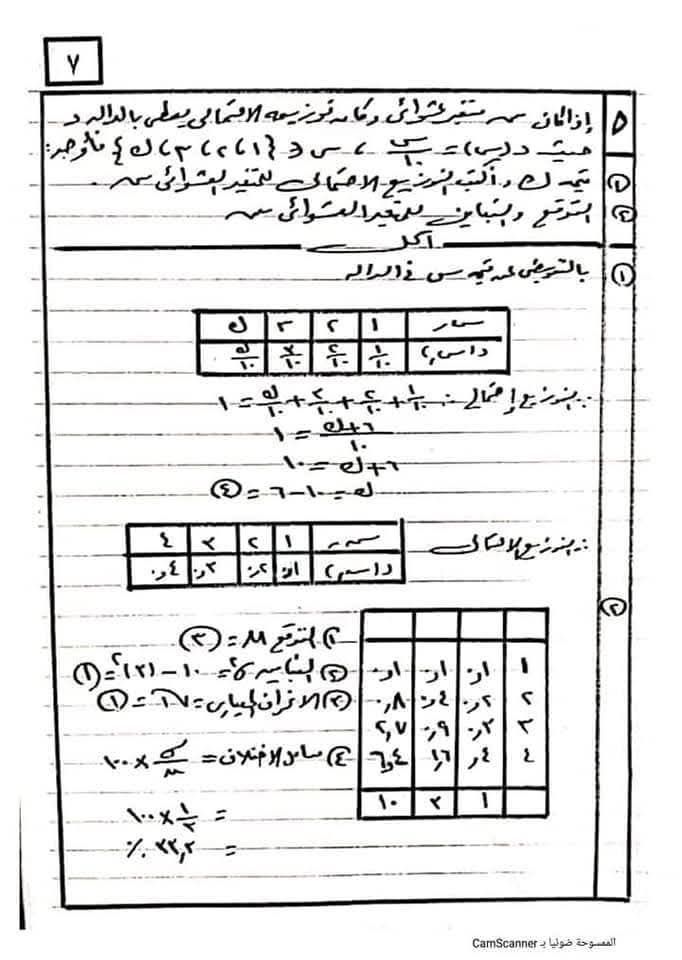 ٧
٥ إذا كان سـ متغير عشوائى وكان توزيعه الاحتمالى يعطى بالداله د
حيث د(س) = س/١٠ ، س ∈ {١ ، ٢ ، ٣ ، ك} فأوجد:
① قيمه ك وأكتب التوزيع الاحتمالى للمتغير العشوائى سـ.
② التوقع والتباين للمتغير العشوائى سـ
الحل
① بالتعويض عن قيمه س فى الداله
سر ١ ٢ ٣ ك
د(سر) ١/١٠ ٢/١٠ ٣/١٠ ك/١٠
∴ التوزيع إحتمالى ∴ ١/١٠ + ٢/١٠ + ٣/١٠ + ك/١٠ = ١
٦+ك/١٠ = ١
٦+ك = ١٠
ك = ١٠-٦ = ④
∴ التوزيع الاحتمالى
سر ١ ٢ ٣ ٤
د(سر) ٠٫١ ٠٫٢ ٠٫٣ ٠٫٤
②
١ ٠٫١ ٠٫١ ٠٫١
٢ ٠٫٢ ٠٫٤ ٠٫٨
٣ ٠٫٣ ٠٫٩ ٢٫٧
٤ ٠٫٤ ١٫٦ ٦٫٤
١ ٣ ١٠
١) التوقع μ = ③
٢) التباين σ² = ١٠ - (٣)² = ①
٣) الانحراف المعيارى = √١ = ①
٤) معامل الاختلاف = σ/μ × ١٠٠
= ١/٣ × ١٠٠
= ٣٣٫٣ ٪
الممسوحة ضوئيا بـ CamScanner